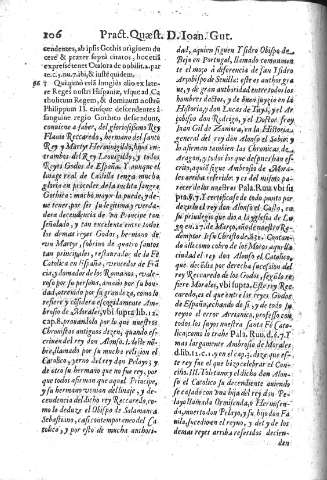 106 Pract. Quæst. D. Ioan. Gut.
cendentes, ab ipsis Gothis originem du
cere & præter septa citatos, hoc etiã
67 Quizimo
gẽ Reges nostri Hispaniæ, vsque ad Ca
tholicum Regem, & dominum nostrũ
Philippum II. eiusque descendentes à
sanguine regio Gothico descendunt,
conuiene a saber, del gloriosissimo Rey
Flauio Reccaredo, hermano del sancto
Rey y Martyr Hermenigildo, hijos en-
trambos del Rey Leouigildo, y todos
Reyes Godos de España. Y aunque el
linage real de Castilla tenga mucha
gloria en proceder de la inclyta sangre
Gothica: mucho mayor la puede, y de-
ue tener por ser su legitima y verda-
dera decendencia de vn Principe tan
señalado, y tan excelente entre todos
los demas reyes Godos, hermano de
vn Martyr, sobrino de quatro santos
tan principales, restaurador de la Fè
Catholica en España, vencedor de Frã
cia, y domador de los Romanos, valero-
so por su persona, amado por su bon-
dad,
fiere y colige
de Morales, vbi supra lib. 12.
cap. 8. prouandolo por lo que nuestros
Chronistas antiguos dizen, quando es-
criuen del rey don Alonso I. deste nõ-
bre, llamado por su mucha religion el
Catolico, yerno del rey don Pelayo, y
de vn su hermano que no fue rey, por
que todos afirman que aquel Principe,
y su hermano venian del linaje, y de-
cendencia del dicho rey Reccaredo, co-
mo lo deduze el Obispo de Salamanca
Sebastiano, casi contemporaneo del Ca
tolico, y por esto de mucha authori-
dad, a quien siguen Ysidro Obispo de
Beja en Portugal, llamado comunmen
te el moço a diferencia de san Ysidro
Arçobispo de Seuilla: este es author gra
ue, y de gran autoridad entre todos los
hombres doctos, y de buen juyzio en la
Historia, y don Lucas de Tuy, y el Ar-
çobispo don Rodrigo, y el Doctor fray
Juan Gil de Zamora, en la Historia
general del rey don Alonso el Sabio. Y
lo afirman tambien las Chronicas de
Aragon, y todos los que despues han es-
crito, a quien sigue Ambrosio de Mora-
les arriba referido. Y es del mismo pa-
recer
certificase de todo punto por
que dio a la yglesia de Lu
go en 27. de Março, año
dentor Iesu Christo de 832. Contan-
do alli como cobro de los Moros aquella
ciudad el rey don Alonso el Catolico,
que decendia por derecha sucession del
rey Reccaredo de los Godos, segũ lo re-
fiere Morales, vbi supra. Este rey Rec-
caredo, es el que entre los reyes Godos
de España, echando de si, y de todo su
reyno el error Arriano, professò con
todos los suyos nuestra santa Fè Cato-
lica, como lo trahe Pala. Ruu. d. 6. 7. Y
mas largamente Ambrosio de Morales
d. lib. 12. c. 1. 9. en el cap. 3. dize, que es-
te rey fue el que hizo celebrar el Con-
cilio III. Toletano, y el dicho don Alon
so el Catolico su decendiente auiendo
se casado con vna hija del rey don Pe-
layo llamada Ormisenda, o Hermisen-
da, muerto don Pelayo, y su hijo don Fa-
uila, sucedio en el reyno, y del y de los
demas reyes arriba referidos decien-
den